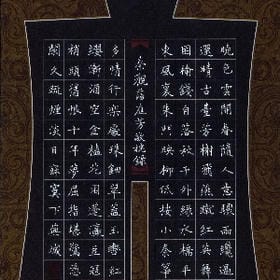 曉色雲開春隨人意驟雨纔過
還晴古臺芳榭飛燕蹴紅英舞
困榆錢自落秋千外綠水橋平
東風裏朱門映柳低按小秦箏
秦觀滿庭芳 錄
多情行樂處珠鈿翠蓋玉轡紅
纓漸酒空金榼花困蓬瀛豆蔻
梢頭舊恨十年夢屈指堪驚憑
闌久疏煙淡日寂寞下蕪城